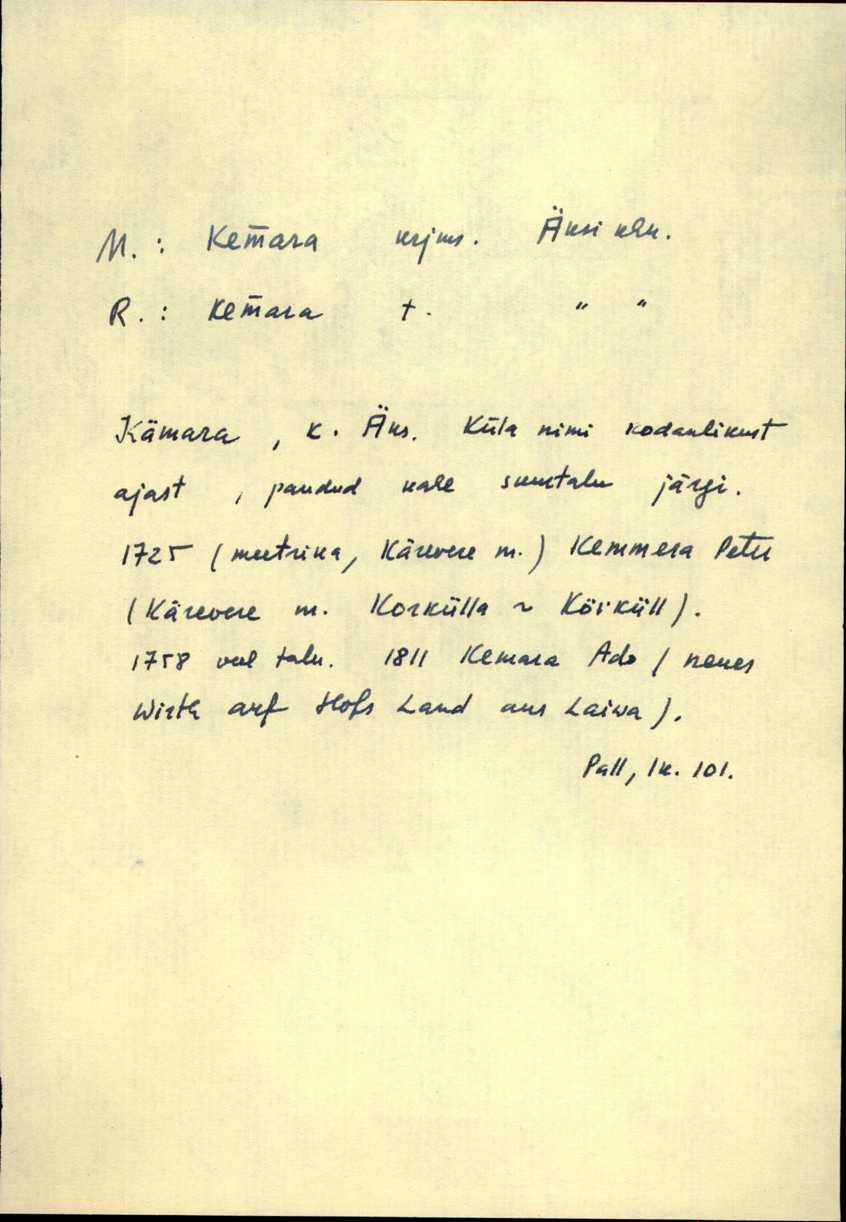 M.: Kem̄ara krjms. Äksi khk.
R.: Kem̄ara t. " "
Kämara, k. Äks. Küla nimi kodanlikust
ajast, pandud kahe suurtalu järgi.
1725 (meetrika, Kärevere m.) Kemmera Peter
(Kärevere m. Korkülla ~ Körküll).
1758 veel talu. 1811 Kemara Ado (neues
Wirth auf Hofs Land aus Laiwa).
Pall, lk. 101.